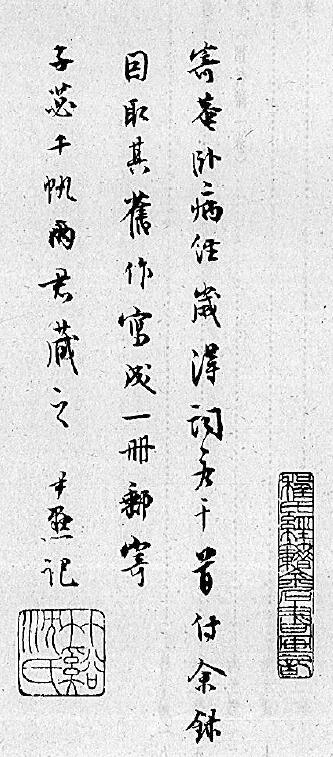 寄菴卧病經歲得詞若干首付余錄
因取其舊作寫成一冊郵寄
子苾千帆兩君藏之 尹默記
竹谿沈氏